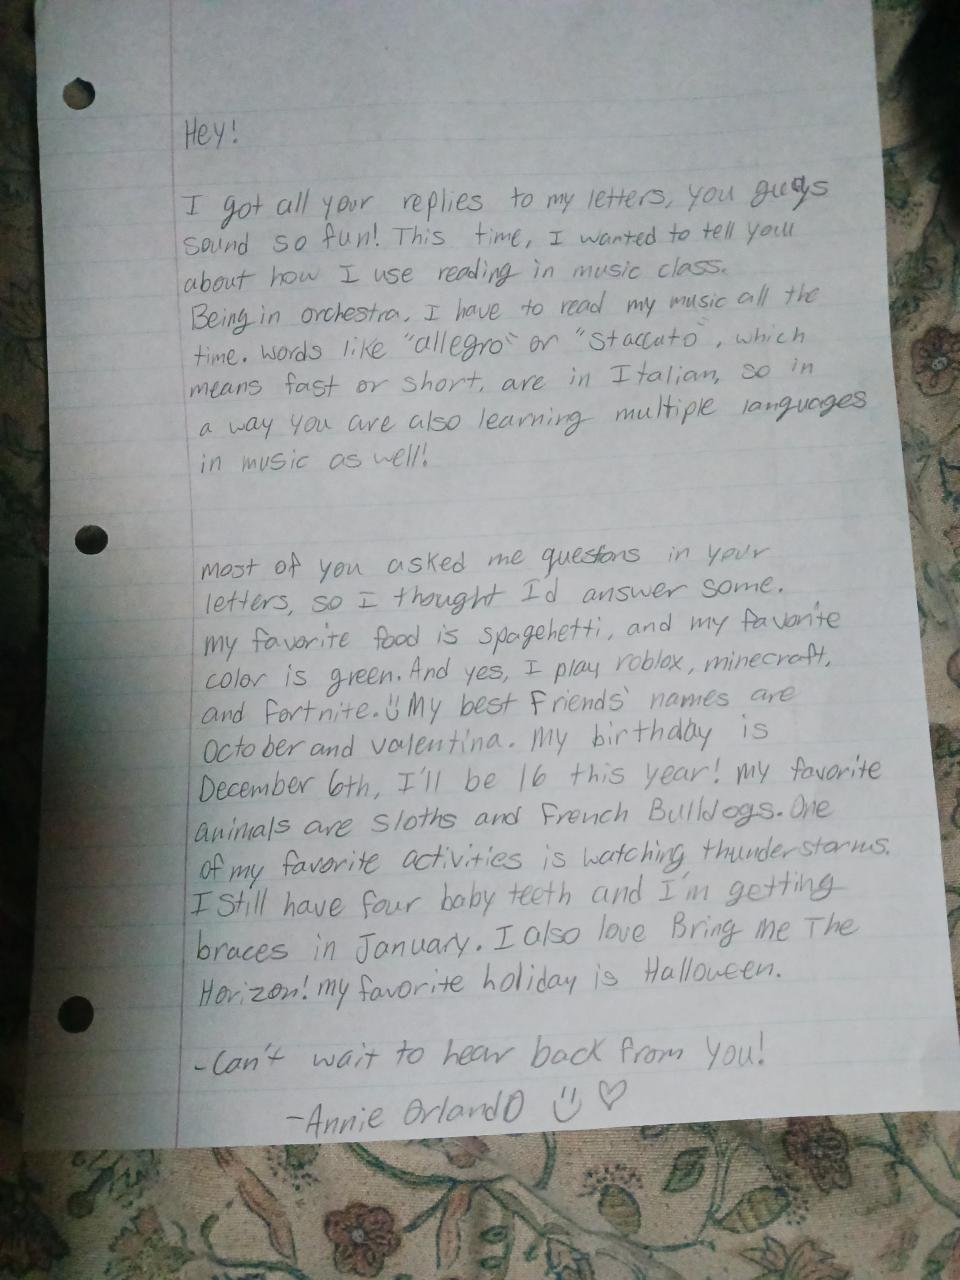 Hey!
I got all your replies to my letters, you guys
sound so fun! This time, I wanted to tell you
about how I use reading in music class.
Being in orchestra, I have to read my music all the
time. Words like "allegro" or "staccato", which
means fast or short, are in Italian, so in
a way you are also learning multiple languages
in music as well!
most of you asked me questons in your
letters, so I thought I'd answer some.
my favorite food is spagehetti, and my favorite
color is green. And yes, I play roblox, minecraft,
and fortnite. ü My best friends' names are
October and valentina. My birthday is
December 6th, I'll be 16 this year! my favorite
animals are sloths and French Bulldogs. One
of my favorite activities is watching thunderstorms.
I still have four baby teeth and I'm getting
braces in January. I also love Bring Me The
Horizon! my favorite holiday is Halloween.
-Can't wait to hear back from you!
-Annie Orlando ü ♡